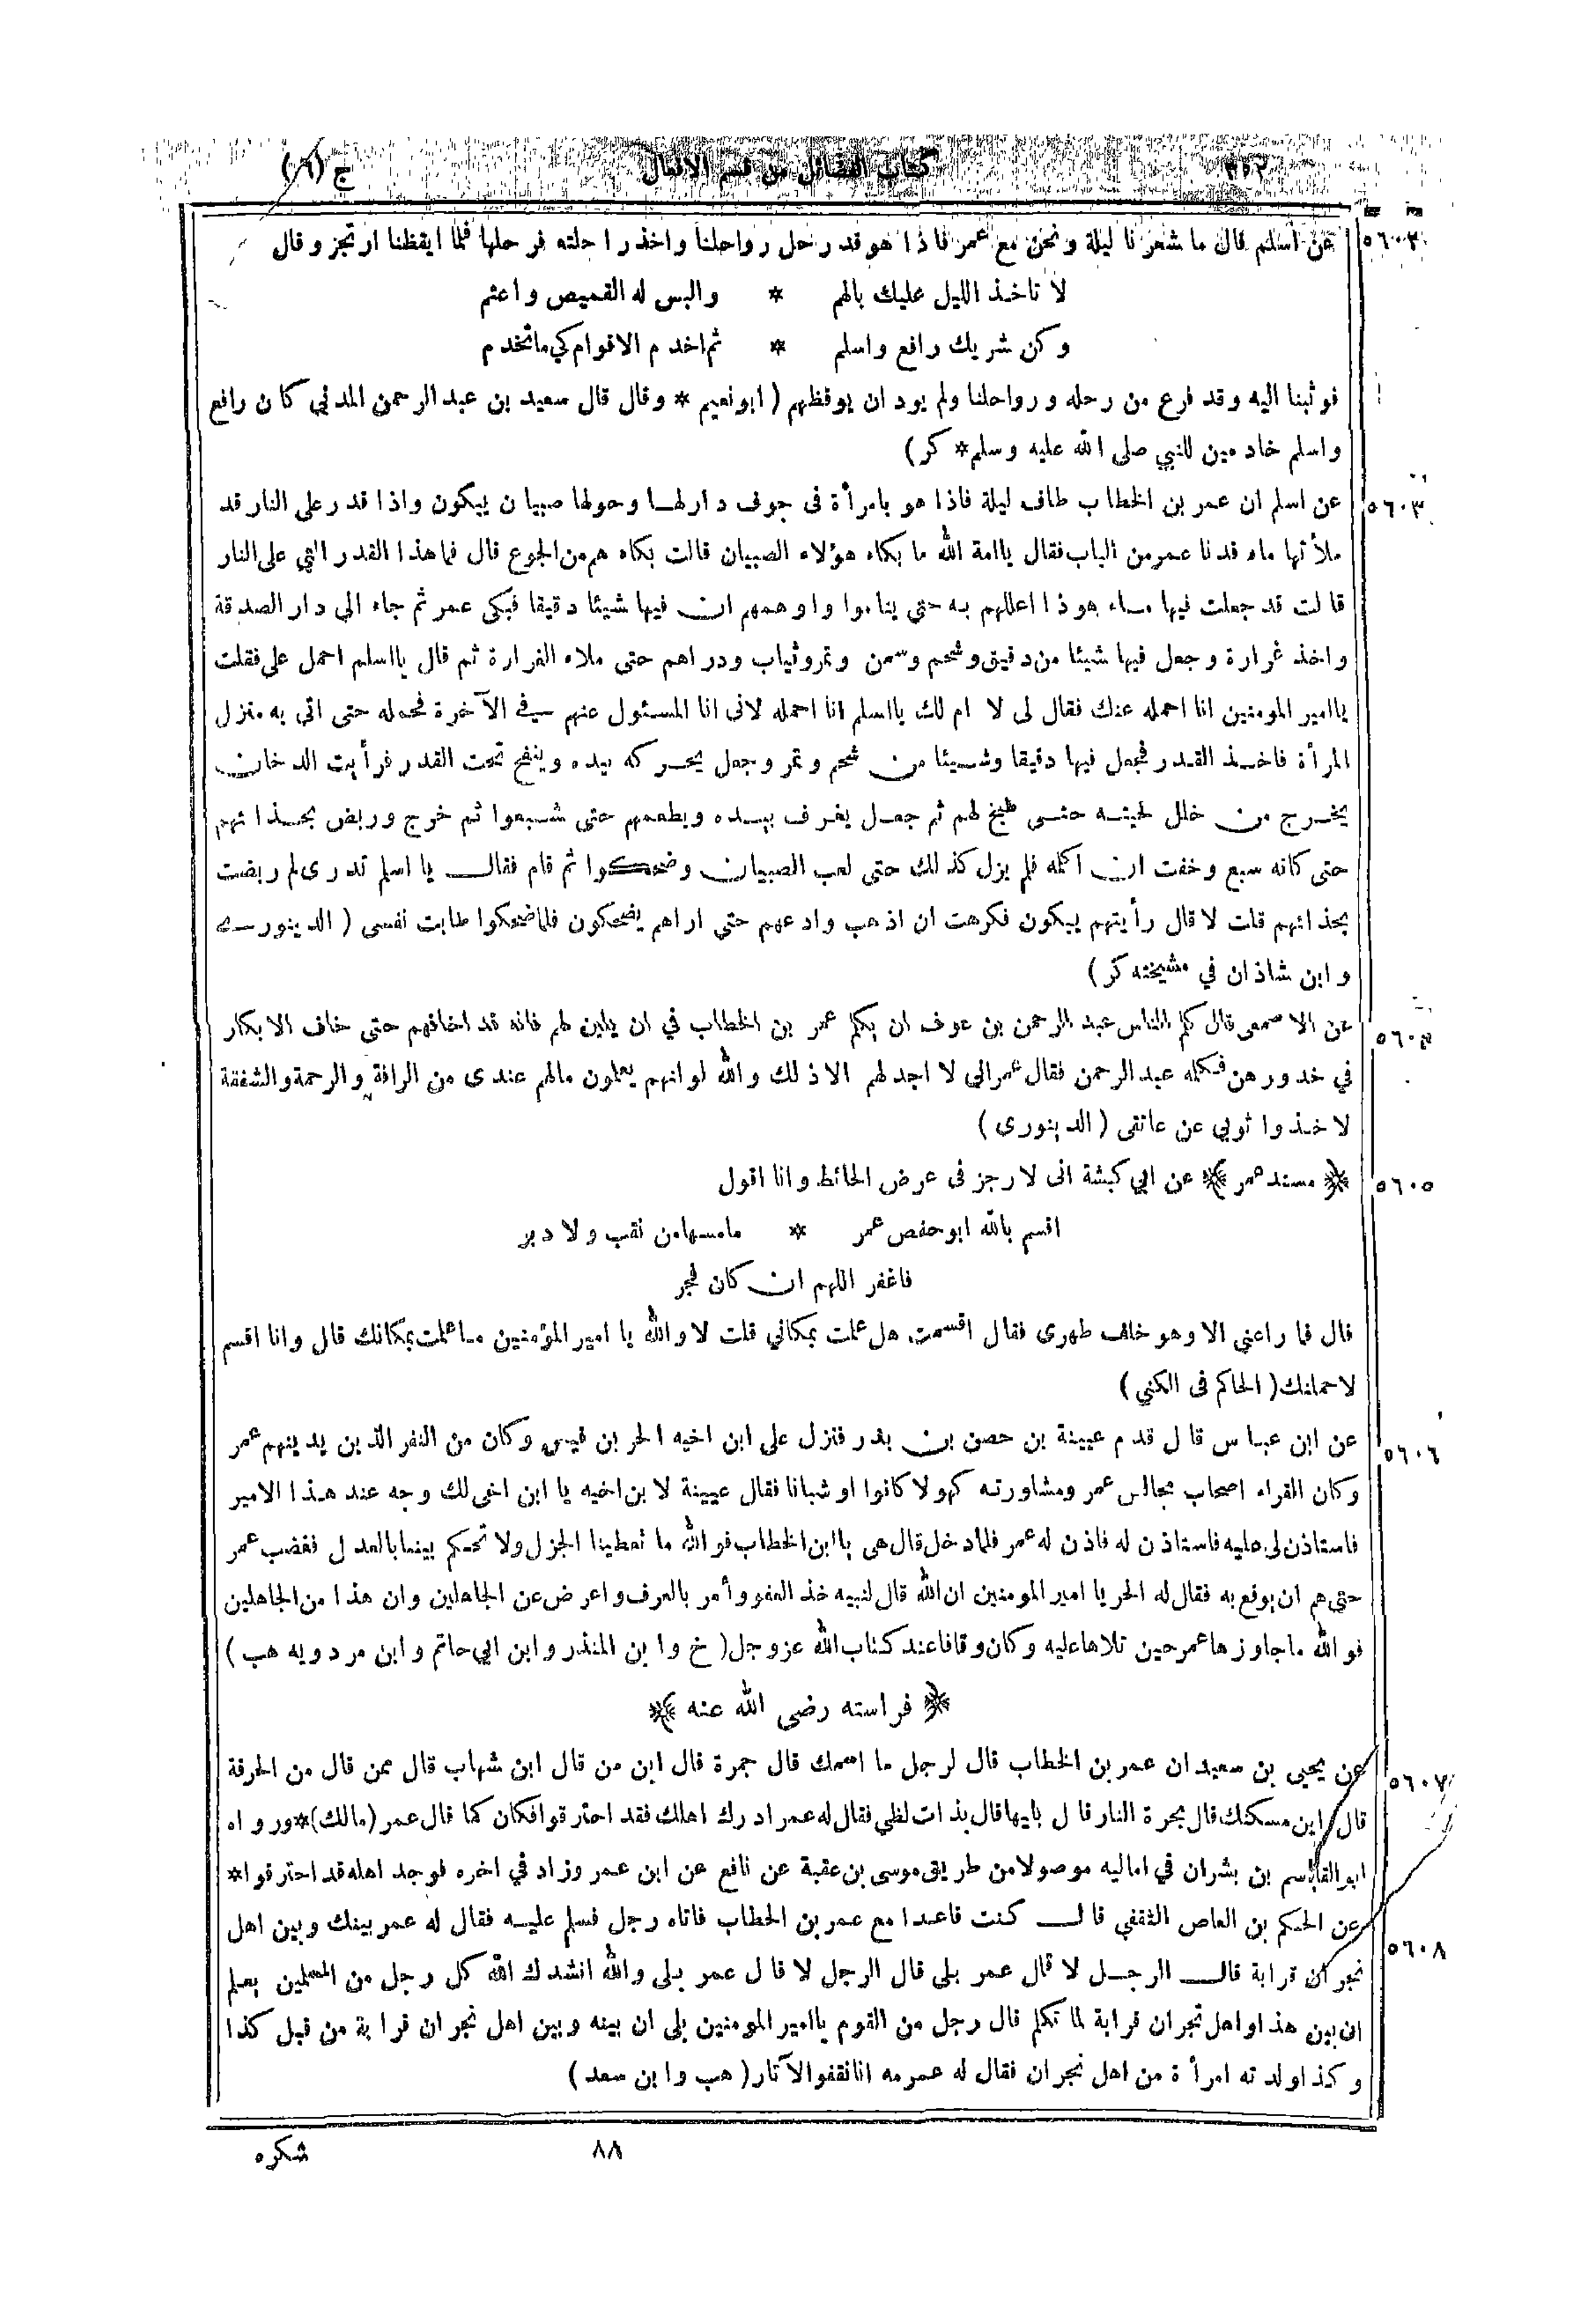 ٣٥٢ كتاب الفضائل من قسم الافعال ج (٦)
٥٦٠٢ عن اسلم قال ما شعرنا ليلة ونحن مع عمر فاذا هو قد رحل رواحلنا واخذ راحلته فرحلها فلما ايقظنا ارتجز وقال
لا تاخذ الليل عليك بالهم * والبس له القميص واعتم
وكن شريك رافع واسلم * ثم اخدم الاقوام كي ما تخدم
فوثبنا اليه وقد فرغ من رحله ورواحلنا ولم يود ان يوقظهم ( ابو نعيم * وقال قال سعيد بن عبد الرحمن المدني كان رافع
واسلم خادمين للنبي صلى الله عليه وسلم * كر )
٥٦٠٣ عن اسلم ان عمر بن الخطاب طاف ليلة فاذا هو بامرأة فى جوف دار لها وحولها صبيان يبكون واذا قدر على النار قد
ملأتها ماء فدنا عمر من الباب فقال ياامة الله ما بكاء هؤلاء الصبيان قالت بكاءهم من الجوع قال فما هذا القدر التي على النار
قالت قد جعلت فيها ماء هوذا اعللهم به حتى يناموا واوهمهم ان فيها شيئا دقيقا فبكى عمر ثم جاء الى دار الصدقة
واخذ غرارة وجعل فيها شيئا من دقيق وشحم وسمن وتمر وثياب ودراهم حتى ملاء الغرارة ثم قال يااسلم احمل على فقلت
ياامير المومنين انا احمله عنك فقال لى لا ام لك يااسلم انا احمله لانى انا المسئول عنهم في الآخرة فحمله حتى اتى به منزل
المرأة فاخذ القدر فجعل فيها دقيقا وشيئا من شحم وتمر وجعل يحركه بيده وينفخ تحت القدر فرأيت الدخان
يخرج من خلل لحيته حتى طبخ لهم ثم جعل يغرف بيده ويطعمهم حتى شبعوا ثم خرج وربض بحذائهم
حتى كانه سبع وخفت ان اكلمه فلم يزل كذلك حتى لعب الصبيان وضحكوا ثم قام فقال يا اسلم تدرى لم ربضت
بحذائهم قلت لا قال رأيتهم يبكون فكرهت ان اذهب وادعهم حتى اراهم يضحكون فلما ضحكوا طابت نفسى ( الدينوري
وابن شاذان في مشيخته كر )
٥٦٠٤ عن الاصمعى قال كلم الناس عبد الرحمن بن عوف ان يكلم عمر بن الخطاب في ان يلين لهم فانه قد اخافهم حتى خاف الابكار
في خدورهن فكلمه عبد الرحمن فقال عمر انى لا اجد لهم الا ذلك والله لو انهم يعلمون مالهم عندى من الرافة والرحمة والشفقة
لاخذوا ثوبي عن عاتقى ( الدينورى )
٥٦٠٥ ﴿ مسند عمر ﴾ عن ابي كبشة انى لارجز فى عرض الحائط وانا اقول
اقسم بالله ابو حفص عمر * ما مسها من نقب ولا دبر
فاغفر اللهم ان كان فجر
قال فما راعنى الا وهو خلف ظهرى فقال اقسمت هل علمت بمكاني قلت لا والله يا امير المؤمنين ما علمت بمكانك قال وانا اقسم
لاحملنك ( الحاكم فى الكنى )
٥٦٠٦ عن ابن عباس قال قدم عيينة بن حصن بن بدر فنزل على ابن اخيه الحر بن قيس وكان من النفر الذين يدينهم عمر
وكان القراء اصحاب مجالس عمر ومشاورته كهولا كانوا او شبانا فقال عيينة لابن اخيه يا ابن اخى لك وجه عند هذا الامير
فاستاذن لى عليه فاستاذن له فاذن له عمر فلما دخل قال هى ياابن الخطاب فوالله ما تعطينا الجزل ولا تحكم بيننا بالعدل فغضب عمر
حتى هم ان يوقع به فقال له الحر يا امير المومنين ان الله قال لنبيه خذ العفو وأمر بالعرف واعرض عن الجاهلين وان هذا من الجاهلين
فوالله ما جاوزها عمر حين تلاها عليه وكان وقافا عند كتاب الله عز وجل ( خ وابن المنذر وابن ابي حاتم وابن مردويه هب )
﴿ فراسته رضى الله عنه ﴾
٥٦٠٧ عن يحيى بن سعيد ان عمر بن الخطاب قال لرجل ما اسمك قال جمرة قال ابن من قال ابن شهاب قال ممن قال من الحرقة
قال اين مسكنك قال بحرة النار قال بايها قال بذات لظى فقال له عمر ادرك اهلك فقد احترقوا فكان كما قال عمر ( مالك ) * ورواه
ابو القاسم بن بشران في اماليه موصولا من طريق موسى بن عقبة عن نافع عن ابن عمر وزاد في اخره فوجد اهله قد احترقوا *
٥٦٠٨ عن الحكم بن العاص الثقفي قال كنت قاعدا مع عمر بن الخطاب فاتاه رجل فسلم عليه فقال له عمر بينك وبين اهل
نجران قرابة قال الرجل لا قال عمر بلى قال الرجل لا قال عمر بلى والله انشدك الله كل رجل من المسلمين يعلم
ان بين هذا واهل نجران قرابة لما تكلم قال رجل من القوم ياامير المومنين بلى ان بينه وبين اهل نجران قرابة من قبل كذا
وكذا ولدته امرأة من اهل نجران فقال له عمر مه انا نقفو الآثار ( هب وابن سعد )
٨٨ شكره